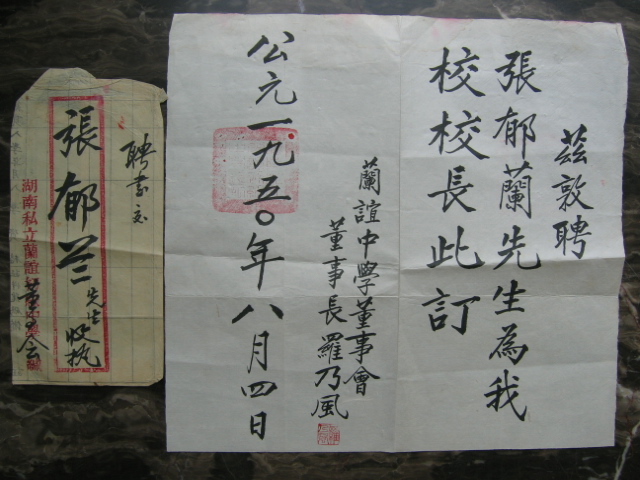 茲敦聘
張郁蘭先生為我
校校長此訂
蘭誼中學董事會
董事長羅乃風
公元一九五〇年八月四日
聘書一玄
張郁兰先生收执
湖南私立蘭誼
董事会